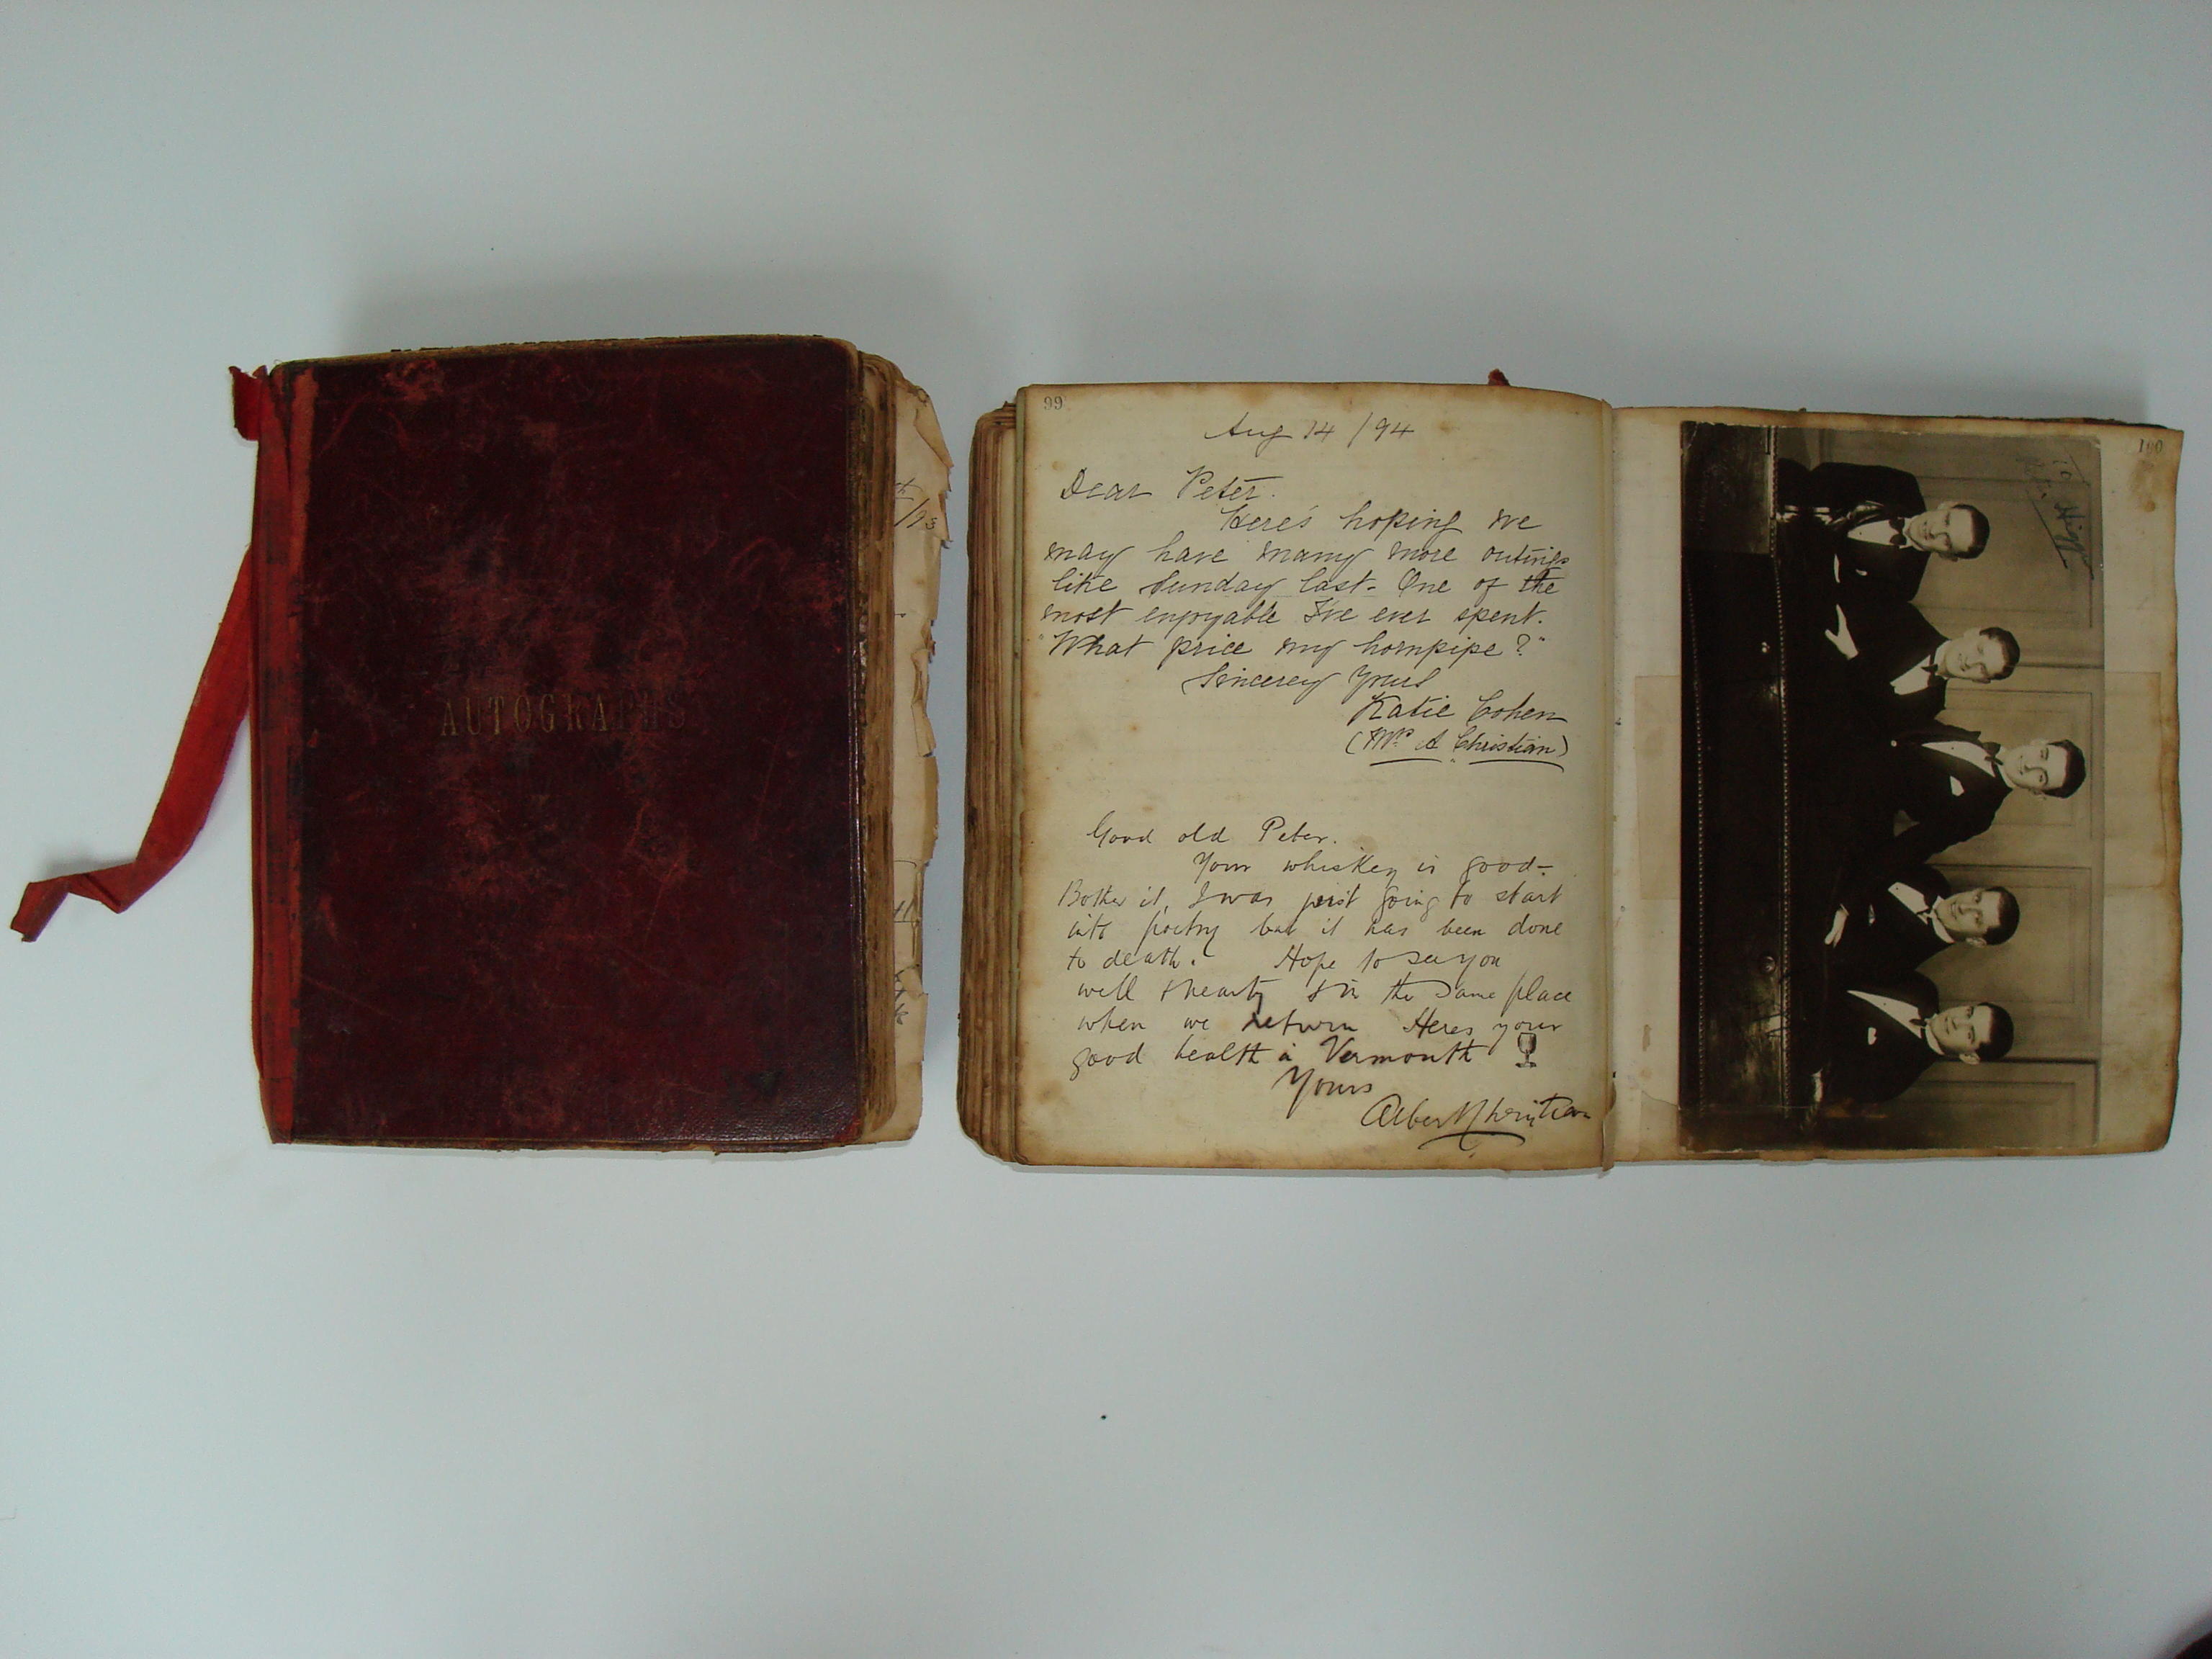 AUTOGRAPHS
99
Aug 14/94
Dear Peter.
Here's hoping we
may have many more outings
like Sunday last. One of the
most enjoyable I've ever spent.
"What price my hornpipe?"
Sincerey Yours
Katie Cohen
(Mrs A Christian)
Good old Peter.
Your whiskey is good-
Bother it, I was just going to start
into poetry but it has been done
to death. Hope to see you
well & hearty & in the same place
when we return Heres your
good health in Vermouth
Yours
Albert Christian
100
To